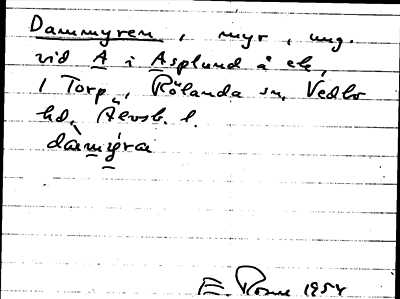 Dammyren, myr, ung.
vid A i Asplund å ek,
1 Torp, Rölanda sn, Vedbo
hd, Älvsb. l.
dàmýra
E. Rosell 1954